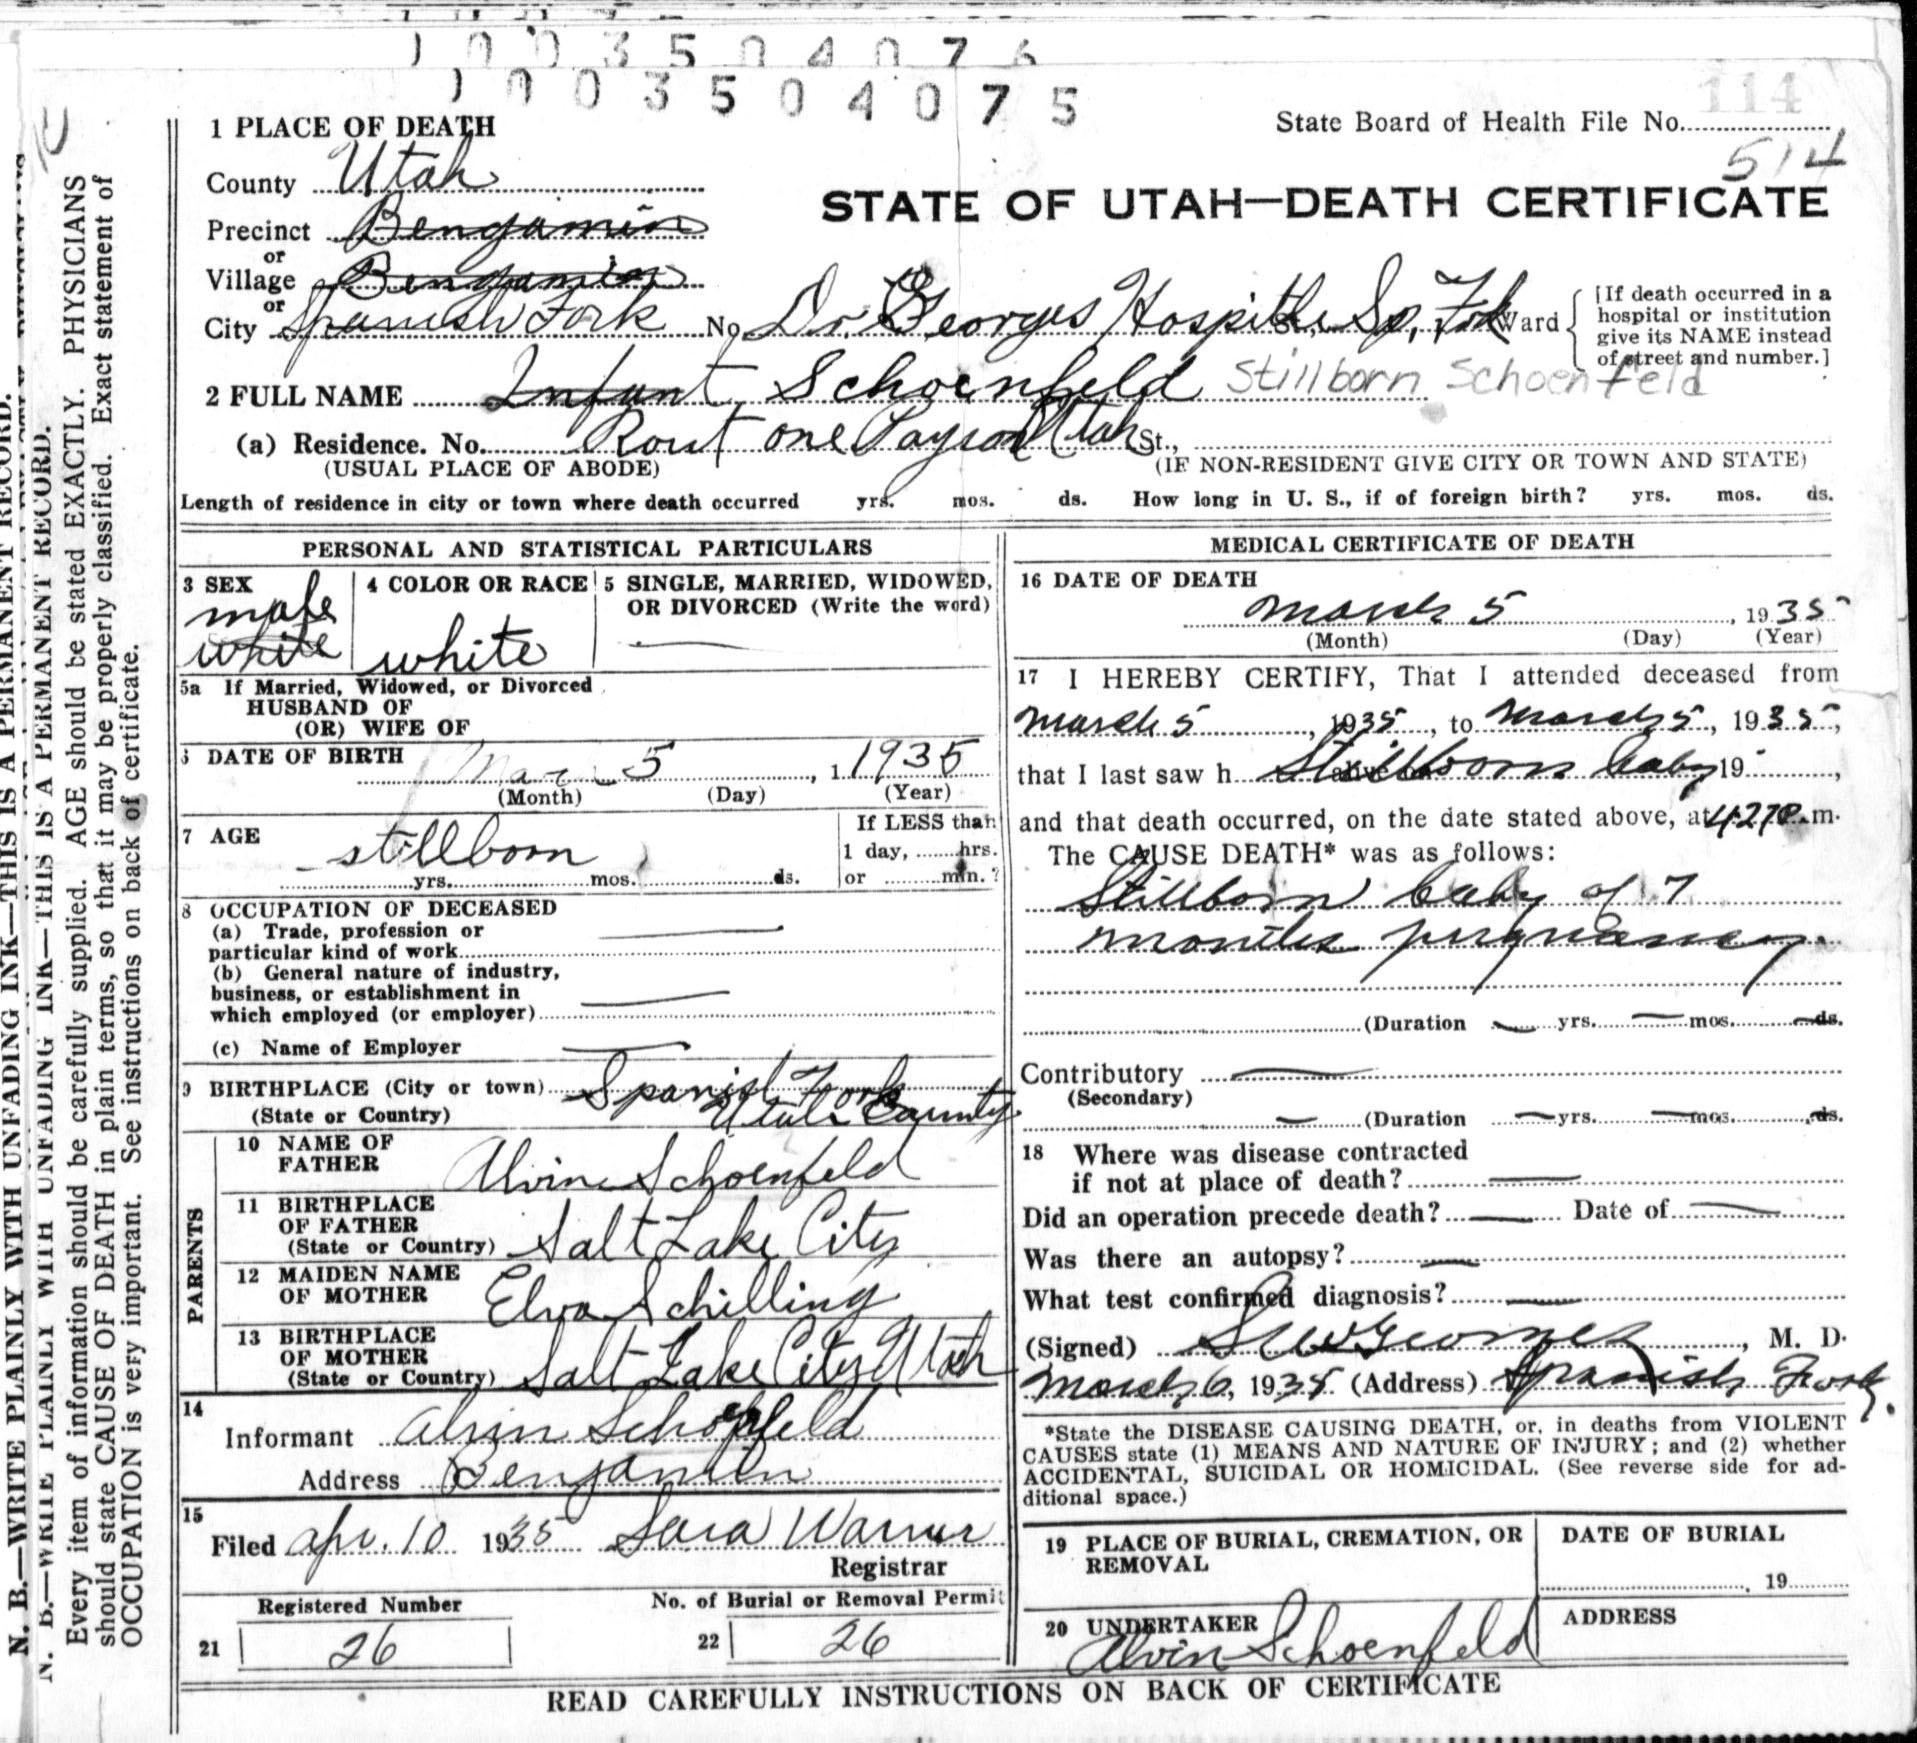 1003504076
1003504075
114
1 PLACE OF DEATH
State Board of Health File No.
514
County Utah
STATE OF UTAH—DEATH CERTIFICATE
Precinct Benjamin
or
Village Benjamin
or
City Spanish Fork No. Dr. Georges Hospital, Sp. Frk Ward
[If death occurred in a
hospital or institution
give its NAME instead
of street and number.]
2 FULL NAME Infant Schoenfeld Stillborn Schoenfeld
(a) Residence. No. Rout one Payson Utah St.,
(USUAL PLACE OF ABODE) (IF NON-RESIDENT GIVE CITY OR TOWN AND STATE)
Length of residence in city or town where death occurred yrs. mos. ds. How long in U. S., if of foreign birth? yrs. mos. ds.
PERSONAL AND STATISTICAL PARTICULARS
3 SEX
male
white
4 COLOR OR RACE
white
5 SINGLE, MARRIED, WIDOWED,
OR DIVORCED (Write the word)
5a If Married, Widowed, or Divorced
HUSBAND OF
(OR) WIFE OF
6 DATE OF BIRTH Mar 5, 1 1935
(Month) (Day) (Year)
7 AGE
stillborn
yrs. mos. ds.
If LESS than
1 day, hrs.
or min.?
8 OCCUPATION OF DECEASED
(a) Trade, profession or
particular kind of work
(b) General nature of industry,
business, or establishment in
which employed (or employer)
(c) Name of Employer
9 BIRTHPLACE (City or town) Spanish Fork
(State or Country) Utah County
PARENTS
10 NAME OF
FATHER Alvin Schoenfeld
11 BIRTHPLACE
OF FATHER
(State or Country) Salt Lake City
12 MAIDEN NAME
OF MOTHER Elva Schilling
13 BIRTHPLACE
OF MOTHER
(State or Country) Salt Lake City Utah
14
Informant Alvin Schoenfeld
Address Benjamin
15
Filed Apr. 10 1935 Sara Warner
Registrar
Registered Number
21 26
No. of Burial or Removal Permit
22 26
MEDICAL CERTIFICATE OF DEATH
16 DATE OF DEATH
March 5, 1935
(Month) (Day) (Year)
17 I HEREBY CERTIFY, That I attended deceased from
March 5, 1935, to March 5, 1935,
that I last saw h Stillborn baby 19 ,
and that death occurred, on the date stated above, at 4:27 P. m.
The CAUSE DEATH* was as follows:
Stillborn baby of 7
months pregnancy.
(Duration yrs. mos. ds.
Contributory
(Secondary)
(Duration yrs. mos. ds.
18 Where was disease contracted
if not at place of death?
Did an operation precede death? Date of
Was there an autopsy?
What test confirmed diagnosis?
(Signed) S W Georges, M. D.
March 6, 1935 (Address) Spanish Fork.
*State the DISEASE CAUSING DEATH, or, in deaths from VIOLENT
CAUSES state (1) MEANS AND NATURE OF INJURY; and (2) whether
ACCIDENTAL, SUICIDAL OR HOMICIDAL. (See reverse side for ad-
ditional space.)
19 PLACE OF BURIAL, CREMATION, OR
REMOVAL
DATE OF BURIAL
, 19
20 UNDERTAKER
Alvin Schoenfeld
ADDRESS
READ CAREFULLY INSTRUCTIONS ON BACK OF CERTIFICATE
N. B.—WRITE PLAINLY WITH UNFADING INK—THIS IS A PERMANENT RECORD.
N. B.—WRITE PLAINLY WITH UNFADING INK—THIS IS A PERMANENT RECORD.
Every item of information should be carefully supplied. AGE should be stated EXACTLY. PHYSICIANS
should state CAUSE OF DEATH in plain terms, so that it may be properly classified. Exact statement of
OCCUPATION is very important. See instructions on back of certificate.